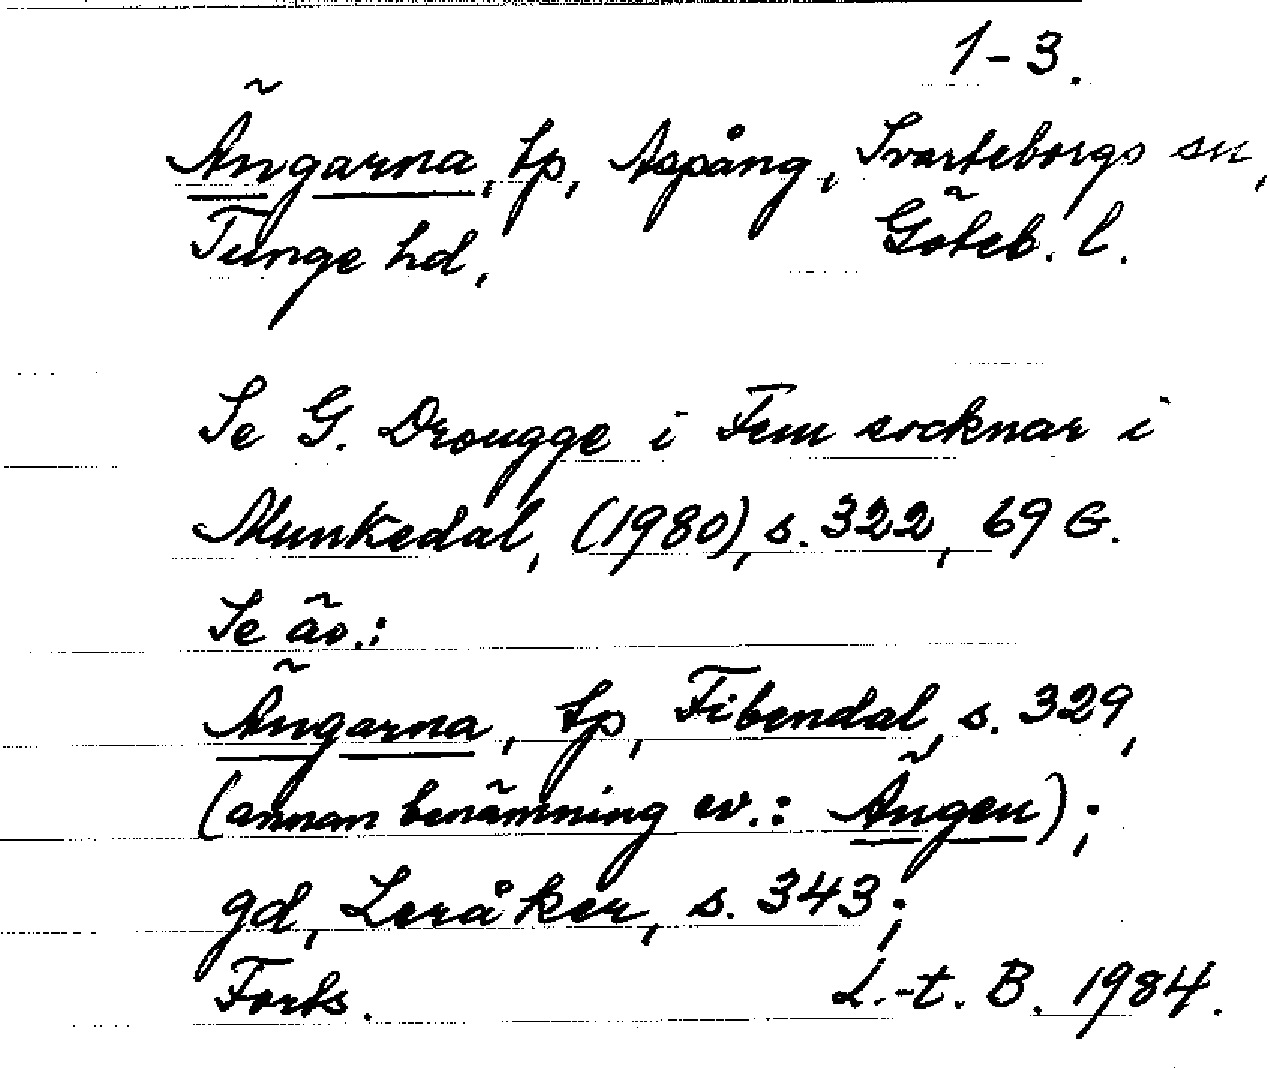 1-3.
Ängarna, tp, Aspång, Svarteborgs sn,
Tunge hd, Göteb. l.
Se G. Drougge i Fem socknar i
Munkedal, (1980), s. 322, 69 G.
Se äv.:
Ängarna, tp, Fibendal, s. 329,
(annan benämning ev.: Ängen);
gd, Leråker, s. 343;
Forts. L.-t. B. 1984.